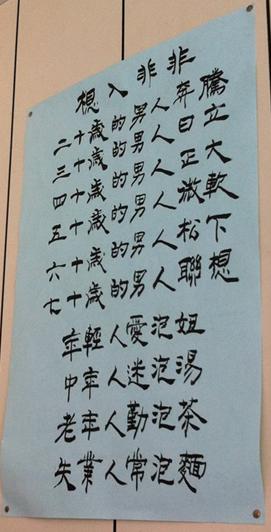 想入非非
二十歲的男人奔騰
三十歲的男人日立
四十歲的男人正大
五十歲的男人微軟
六十歲的男人松下
七十歲的男人聯想
年輕人愛泡妞
中年人迷泡湯
老年人勤泡茶
失業人常泡麵